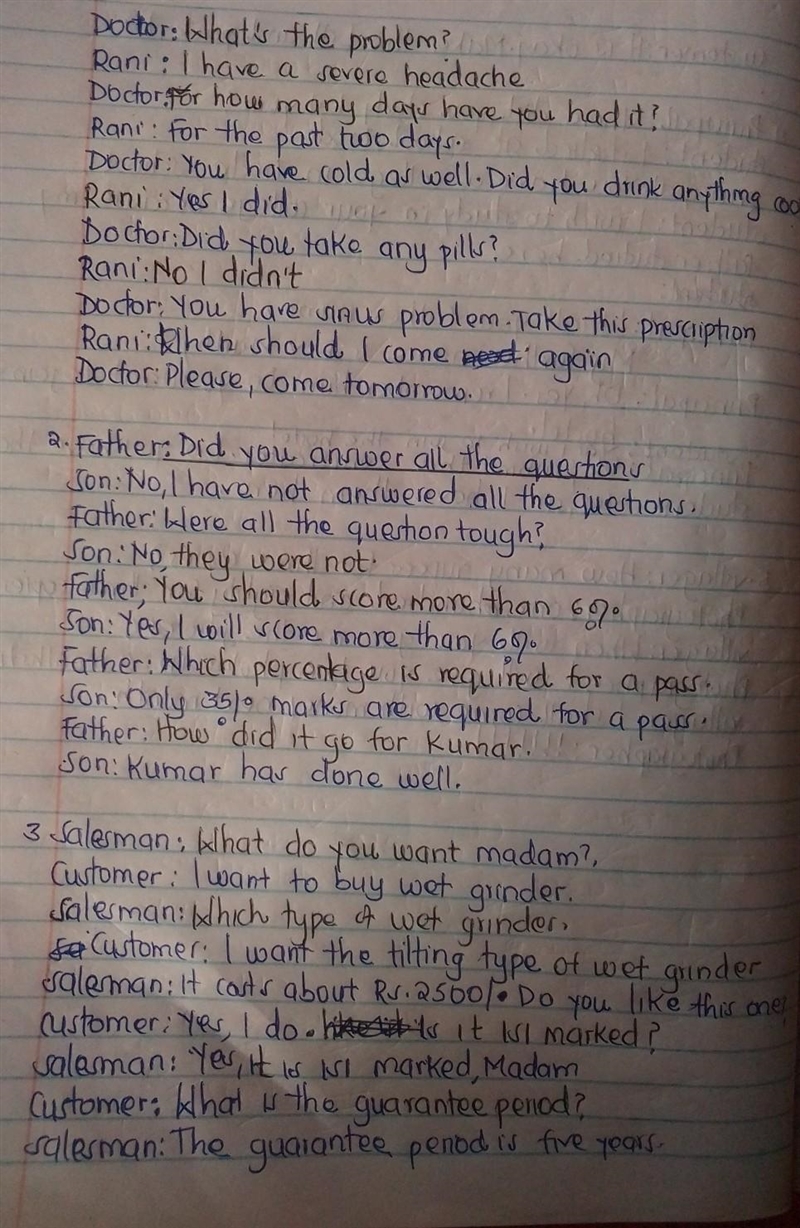 Doctor: What's the problem?
Rani: I have a severe headache
Doctor: For how many days have you had it?
Rani: For the past two days.
Doctor: You have cold as well. Did you drink anything
Rani: Yes I did.
Doctor: Did you take any pills?
Rani: No I didn't
Doctor: You have sinus problem. Take this prescription
Rani: When should I come again
Doctor: Please, come tomorrow.
2. Father: Did you answer all the questions
Son: No, I have not answered all the questions.
Father: Were all the question tough?
Son: No, they were not.
Father; You should score more than 60%
Son: Yes, I will score more than 60%
Father: Which percentage is required for a pass.
Son: Only 35% marks are required for a pass.
Father: How did it go for Kumar.
Son: Kumar has done well.
3 Salesman: What do you want madam?,
Customer: I want to buy wet grinder.
Salesman: Which type of wet grinder.
Customer: I want the tilting type of wet grinder
Salesman: It costs about Rs. 2500/. Do you like this one
Customer: Yes, I do. Is it ISI marked?
Salesman: Yes, it is ISI marked, Madam
Customer: What is the guarantee period?
Salesman: The guarantee period is five years.